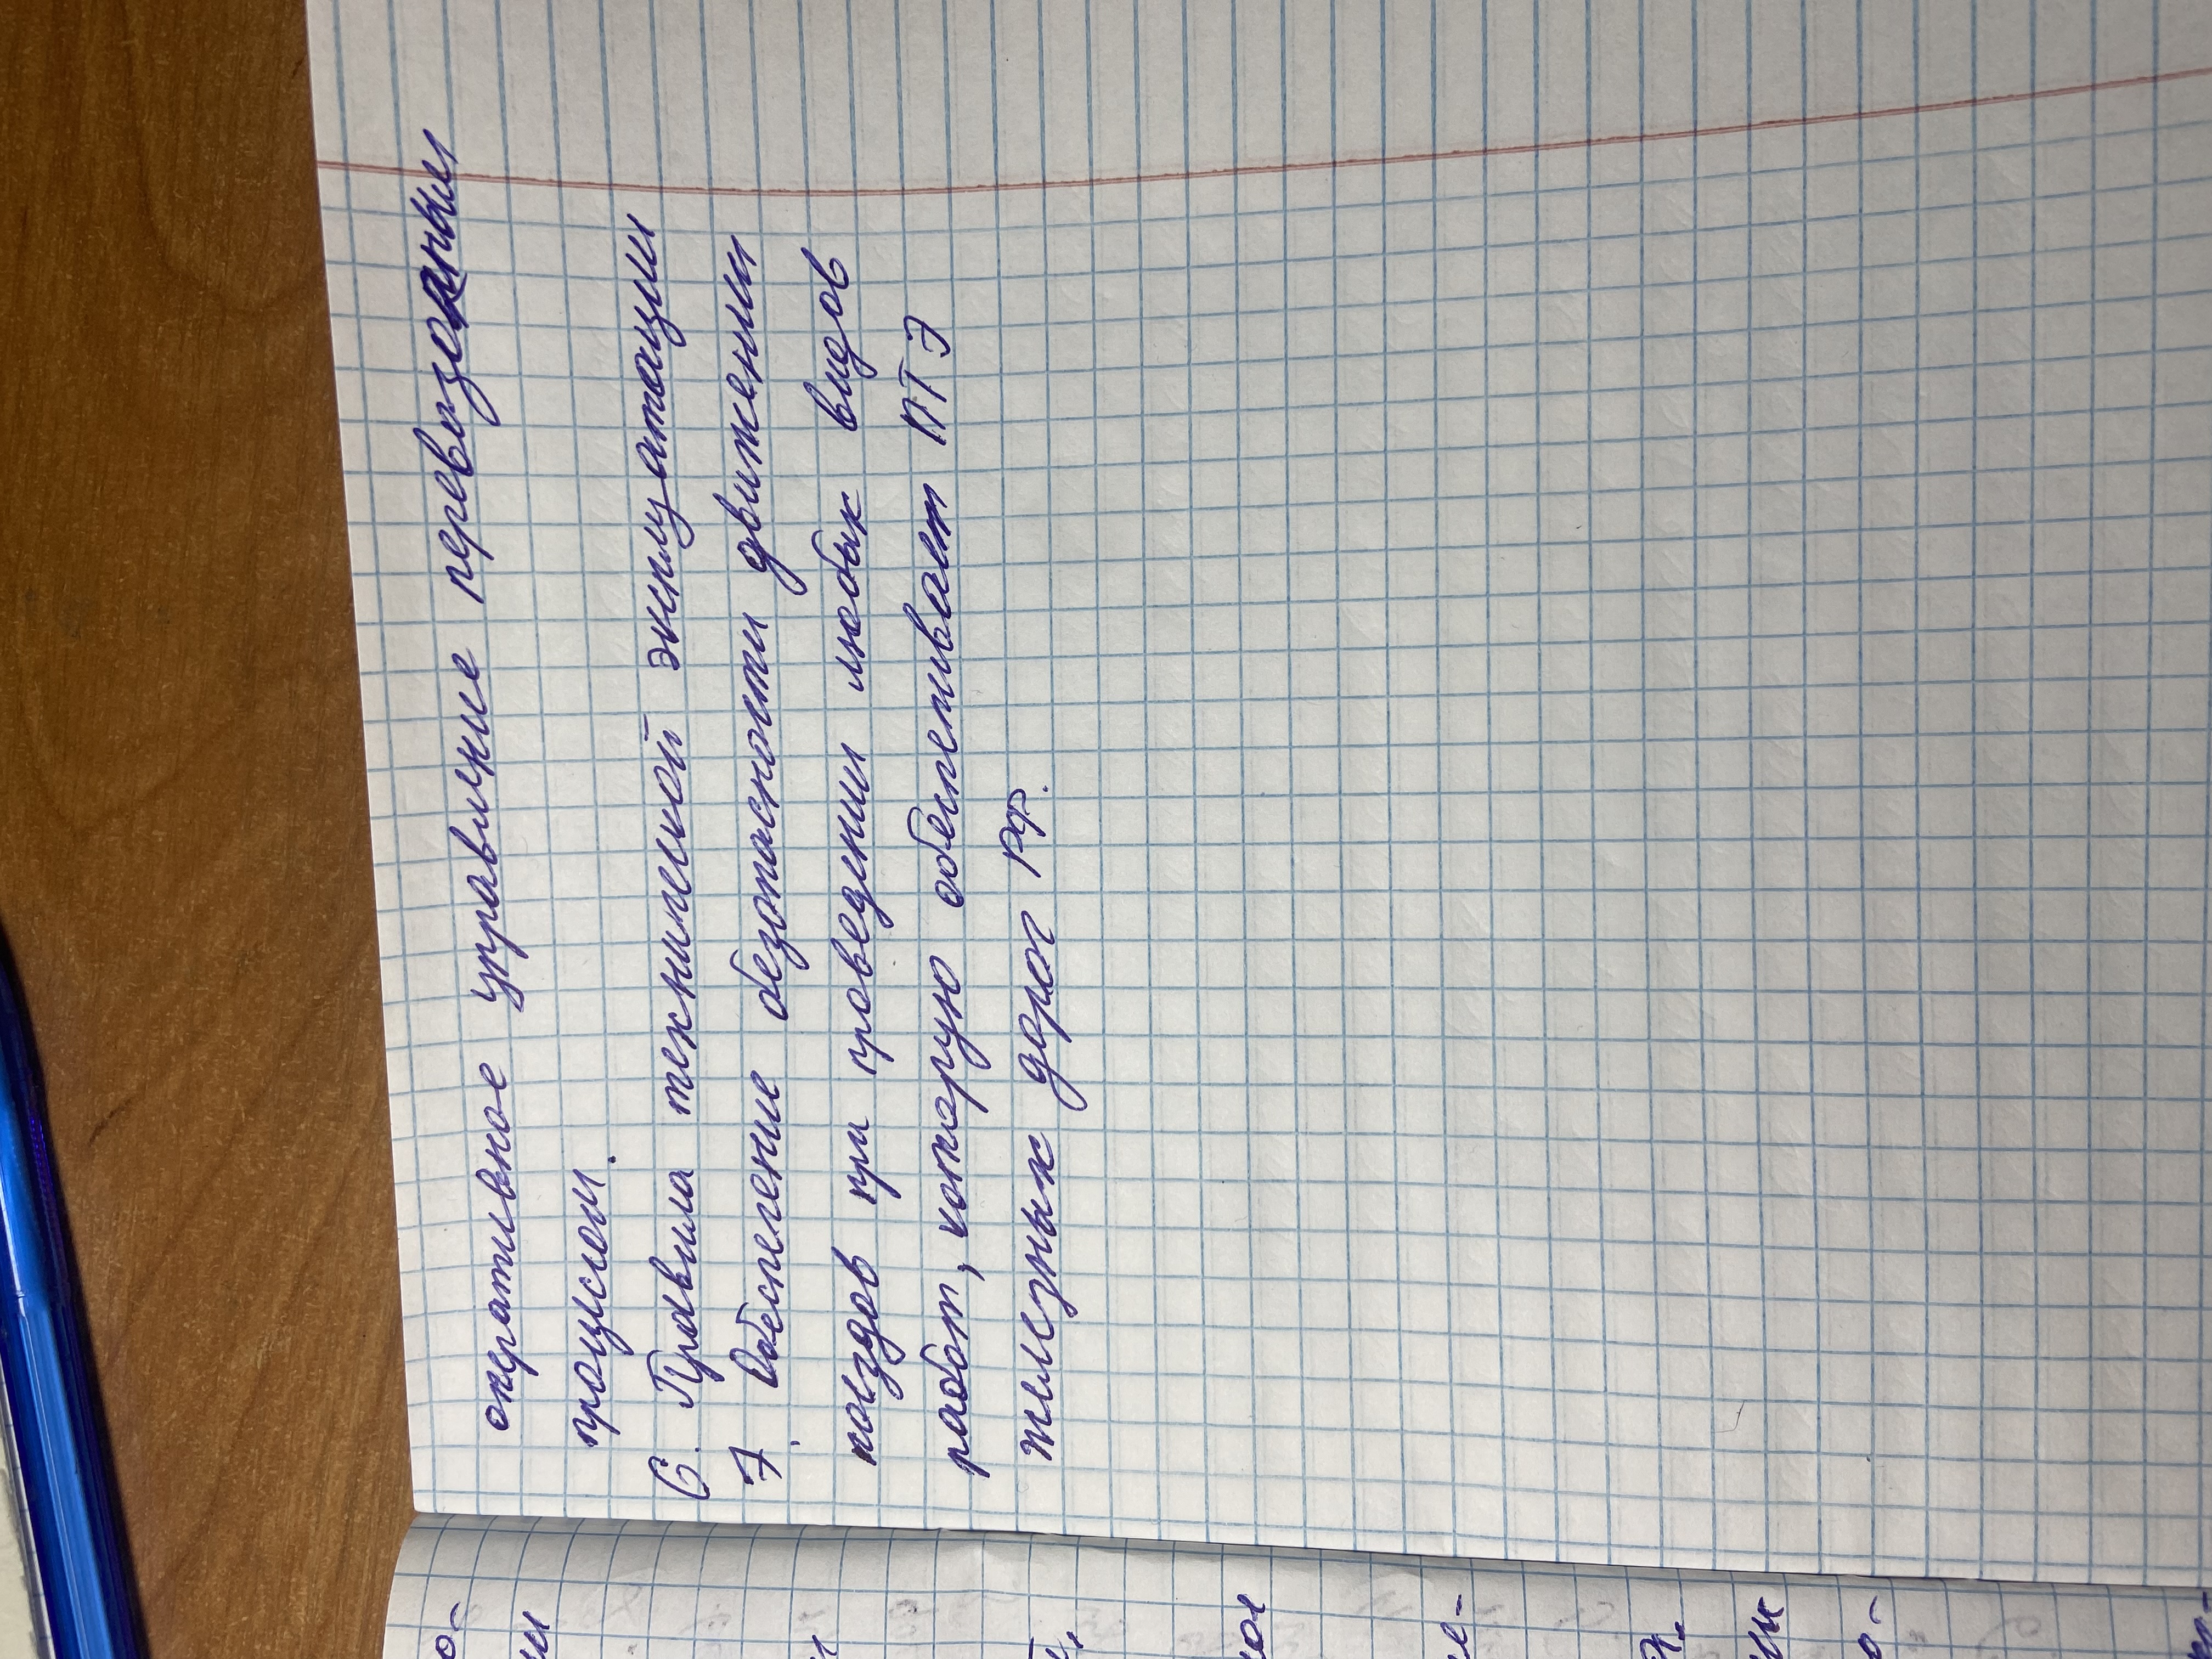 оперативное управление перевозочным
процессом.
6. Правила технической эксплуатации
7. Обеспечение безопасности движения
поездов при проведении любых видов
работ, которую обеспечивает ПТЭ
железных дорог РФ.